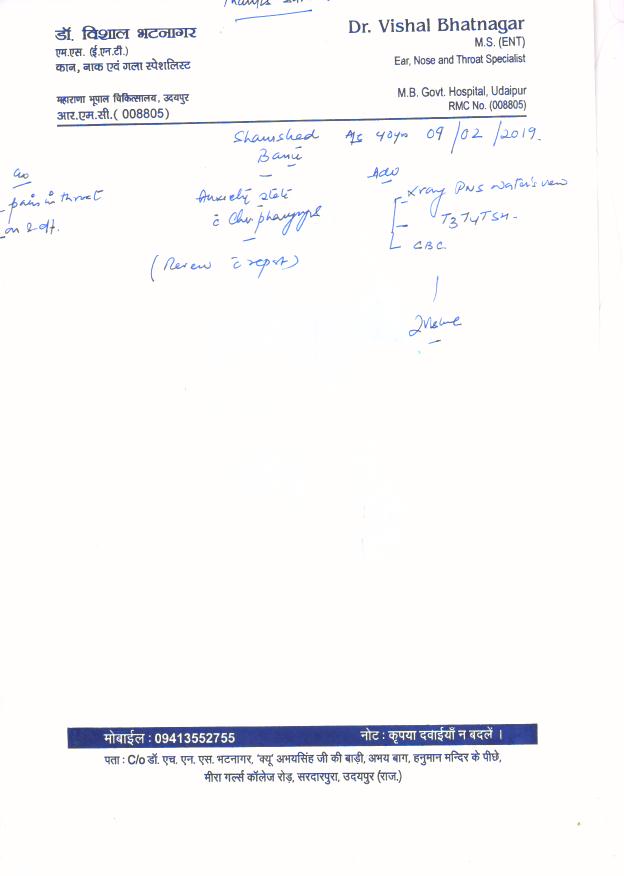 डॉ. विशाल भटनागर
एम.एस. (ई.एन.टी.)
कान, नाक एवं गला स्पेशलिस्ट
महाराणा भूपाल चिकित्सालय, उदयपुर
आर.एम.सी.( 008805)
Dr. Vishal Bhatnagar
M.S. (ENT)
Ear, Nose and Throat Specialist
M.B. Govt. Hospital, Udaipur
RMC No. (008805)
Shamshed 40yrs 09/02/2019.
Banu
c/o
- pain in throat
on & off.
Anxiety state
c̄ Chr pharyngitis
(Review c̄ report)
Adv
Xray PNS water's view
T3 T4 TSH -
CBC.
मोबाईल : 09413552755
नोट : कृपया दवाईयाँ न बदलें ।
पता : C/o डॉ. एच. एन. एस. भटनागर, 'क्यू' अभयसिंह जी की बाड़ी, अभय बाग, हनुमान मन्दिर के पीछे,
मीरा गर्ल्स कॉलेज रोड़, सरदारपुरा, उदयपुर (राज.)